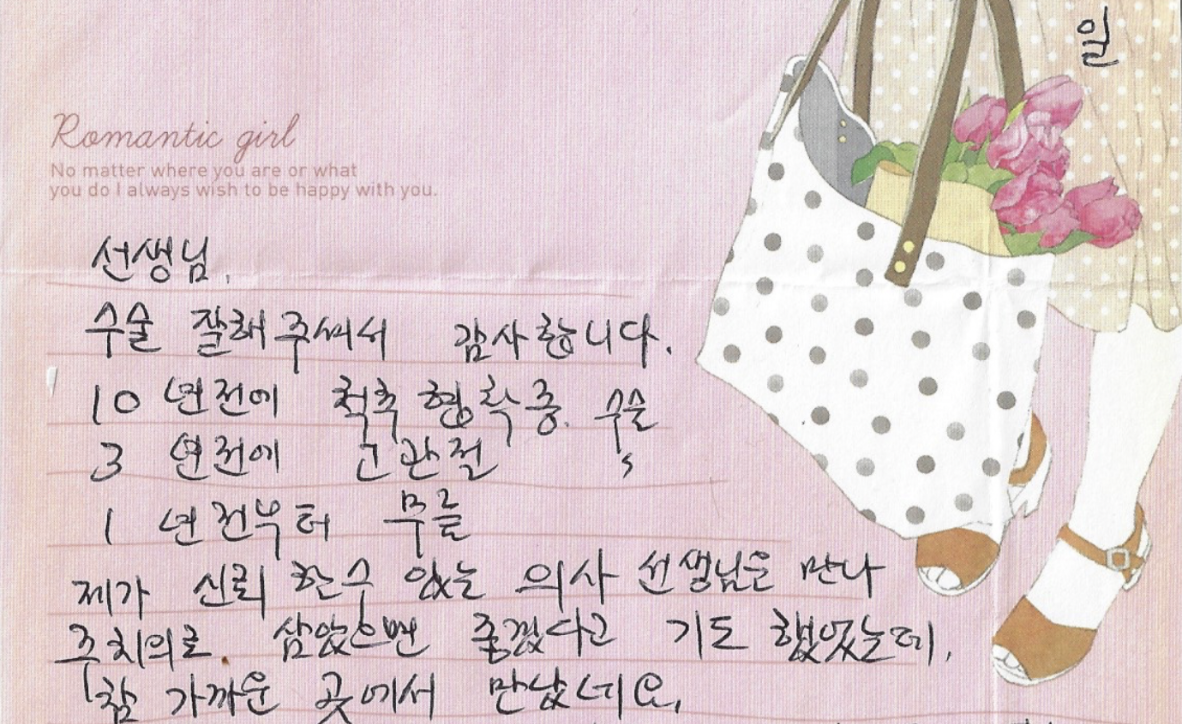 일
Romantic girl
No matter where you are or what
you do I always wish to be happy with you.
선생님,
수술 잘해주셔서 감사합니다.
10 년전에 척추 협착증. 수술
3 년전에 고관절 〃
1 년전부터 무릎
제가 신뢰 할수 있는 의사 선생님을 만나
주치의로 삼았으면 좋겠다고 기도 했었는데,
참 가까운 곳에서 만났네요.